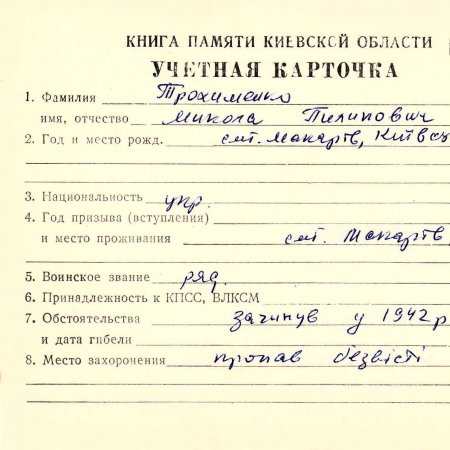 КНИГА ПАМЯТИ КИЕВСКОЙ ОБЛАСТИ
УЧЕТНАЯ КАРТОЧКА
1. Фамилия Трохименко
имя, отчество Микола Пилипович
2. Год и место рожд. смт. Макарів, Київсь
3. Национальность укр.
4. Год призыва (вступления)
и место проживания смт. Макарів
5. Воинское звание ряд.
6. Принадлежность к КПСС, ВЛКСМ
7. Обстоятельства загинув у 1942 р
и дата гибели
8. Место захоронения пропав безвісті